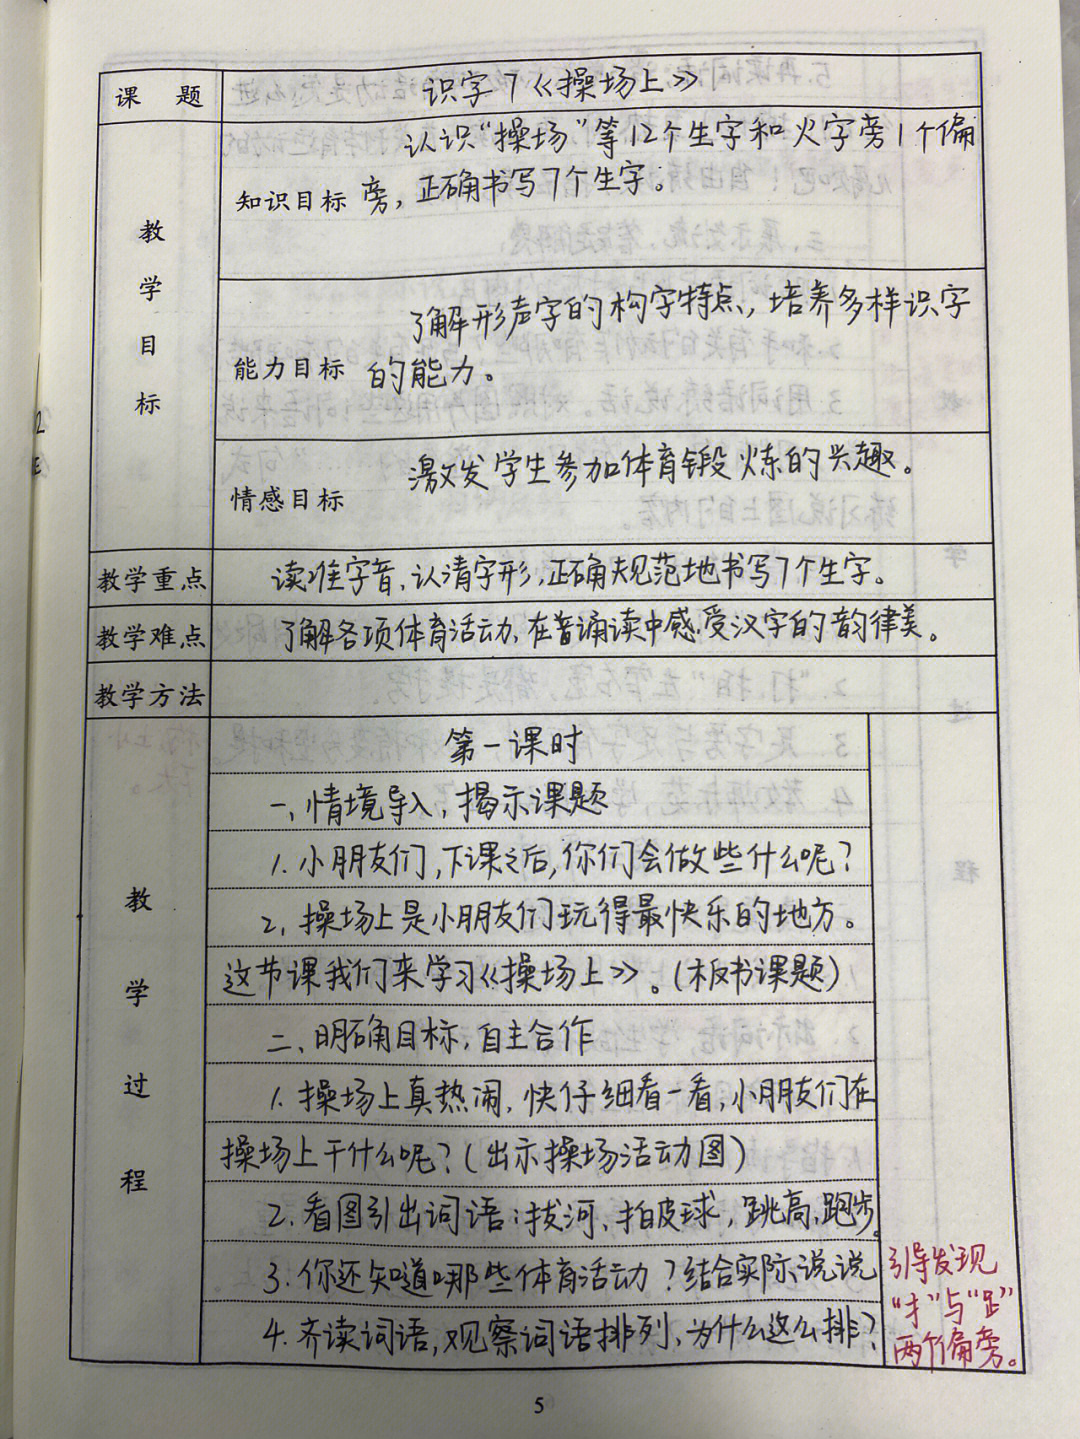 课 题
识字7《操场上》
教学目标
知识目标
认识“操场”等12个生字和火字旁1个偏
旁，正确书写7个生字。
能力目标
了解形声字的构字特点，培养多样识字
的能力。
情感目标
激发学生参加体育锻炼的兴趣。
教学重点
读准字音，认清字形，正确规范地书写7个生字。
教学难点
了解各项体育活动，在普诵读中感受汉字的韵律美。
教学方法
教学过程
第一课时
一、情境导入，揭示课题
1.小朋友们，下课之后，你们会做些什么呢？
2.操场上是小朋友们玩得最快乐的地方。
这节课我们来学习《操场上》。(板书课题)
二、明确目标，自主合作
1.操场上真热闹，快仔细看一看，小朋友们在
操场上干什么呢？(出示操场活动图)
2.看图引出词语：拔河、拍皮球，跳高、跑步。
3.你还知道哪些体育活动？结合实际说说
4.齐读词语，观察词语排列，为什么这么排？
引导发现
“扌”与“⻊”
两个偏旁。
5